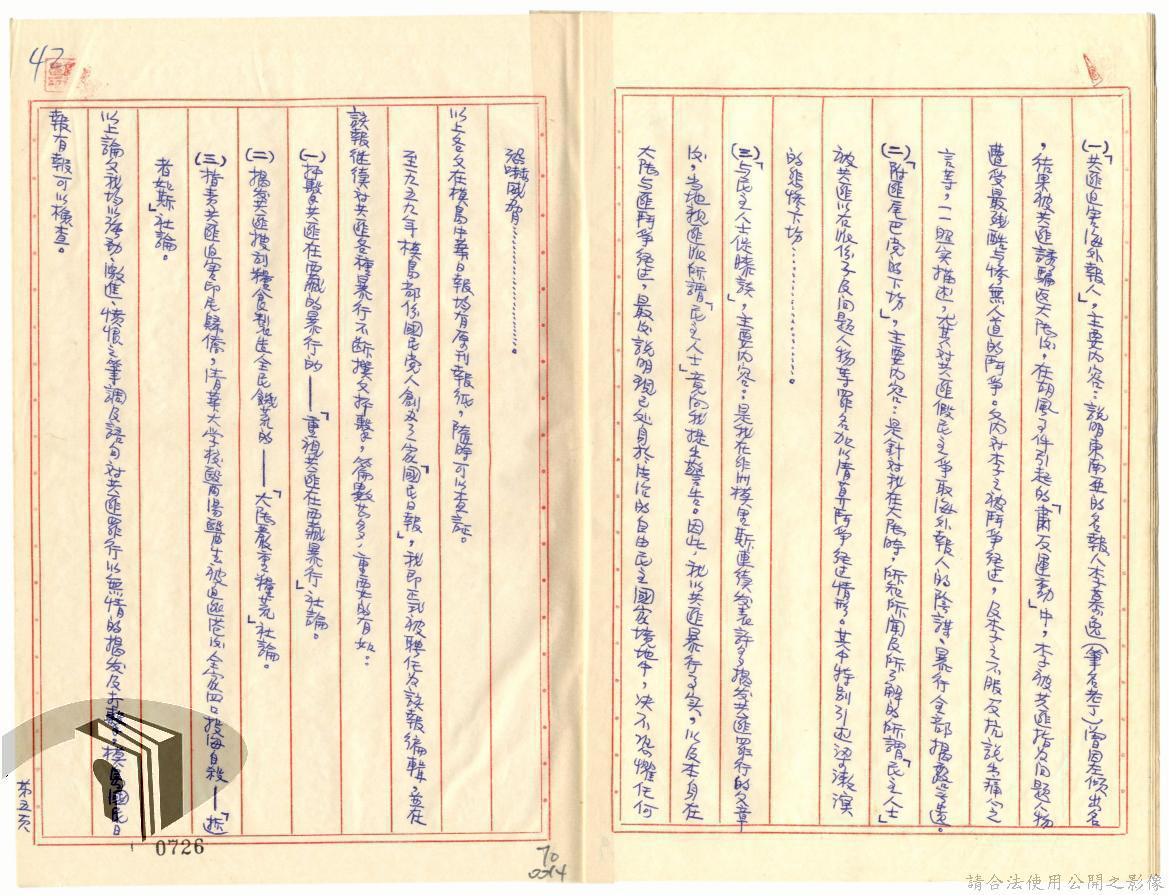 (一)「共匪迫害海外報人」,主要內容:說明東南亞的名報人李募逸(筆名老丁)曾因左傾出名
,結果被共匪誘騙返大陸後,在胡風事件引起的「肅反運動」中,李子被共匪指為問題人物
遭受最殘酷与慘無人道的鬥爭。文內对李之被鬥爭經过,及李子之不服反抗說出痛心之
言等,一一照实描述,尤其对共匪假民主爭取海外報人的陰謀、暴行全部揭露無遺。
(二)「附匪尾巴党的下坊」,主要內容:是針对我在大陸時,所知所聞及所了解的所謂「民主人士」
被共匪以右派份子及问題人物等罪名加以清算鬥爭經过情形。其中特別引述梁漱溟
的悲慘下坊……………。
(三)「与民主人士佚勝談」,主要內容:是我在非洲模里斯連續发表許多揭发共匪罪行的文章
後,当地親匪派所謂「民主人士」竟向我提出警告。因此,我以共匪暴行事实,以及本身在
大陸与匪鬥爭經过,最後說明現已处身於法治的自由民主國家境地中,決不恐懼任何
恐嚇威脅……………。
以上各文在模島中華日報均有原刊報紙,隨時可以查証。
至一九五九年模島部份國民党人創办了一家「國民日報」,我即正式被聘任為該報編輯,並在
該報继續对共匪各種暴行不断撰文抨擊,篇數甚多,重要的有如:
(一)抨擊共匪在西藏的暴行的——「重視共匪在西藏暴行」社論。
(二)揭发共匪搜刮糧食製造全民饑荒的——「大陸嚴重糧荒」社論。
(三)指責共匪迫害印尼歸僑,清華大学校醫周湯醫生被逼逃港後全家四口投海自殺——「逝
者如斯」社論。
以上論文我均以激動、激進、憤恨之筆調及語句对共匪罪行以無情的揭发及打擊。模島國民日
報有報可以檢查。
第五頁
47
0726
70
請合法使用公開之影像